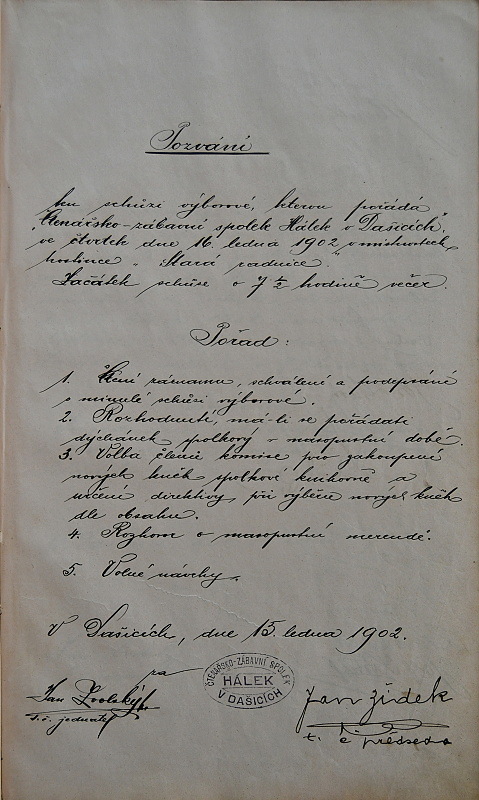 Pozvání
ku schůzi výborové, kterou pořádá
„Čtenářsko-zábavní spolek Hálek v Dašicích“,
ve čtvrtek dne 16. ledna 1902 v místnostech
hostince „Stará radnice.“
Začátek schůze o 7 ½ hodině večer.
Pořad:
1. Čtení záznamu, schválení a podepsání
s minulé schůzi výborové.
2. Rozhodnutí, má-li se pořádati
dýchánek spolkový v masopustní době.
3. Volba členů komise pro zakoupení
nových knih spolkové knihovně a
určení direktivy, při výběru nových knih
dle obsahu.
4. Rozhovor o masopustní merendě.
5. Volné návrhy.
V Dašicích, dne 15. ledna 1902.
za
ČTENÁŘSKO-ZÁBAVNÍ SPOLEK
HÁLEK
V DAŠICÍCH
Jan Zvolský
t. č. jednatel
Jan Žídek
t. č. předseda